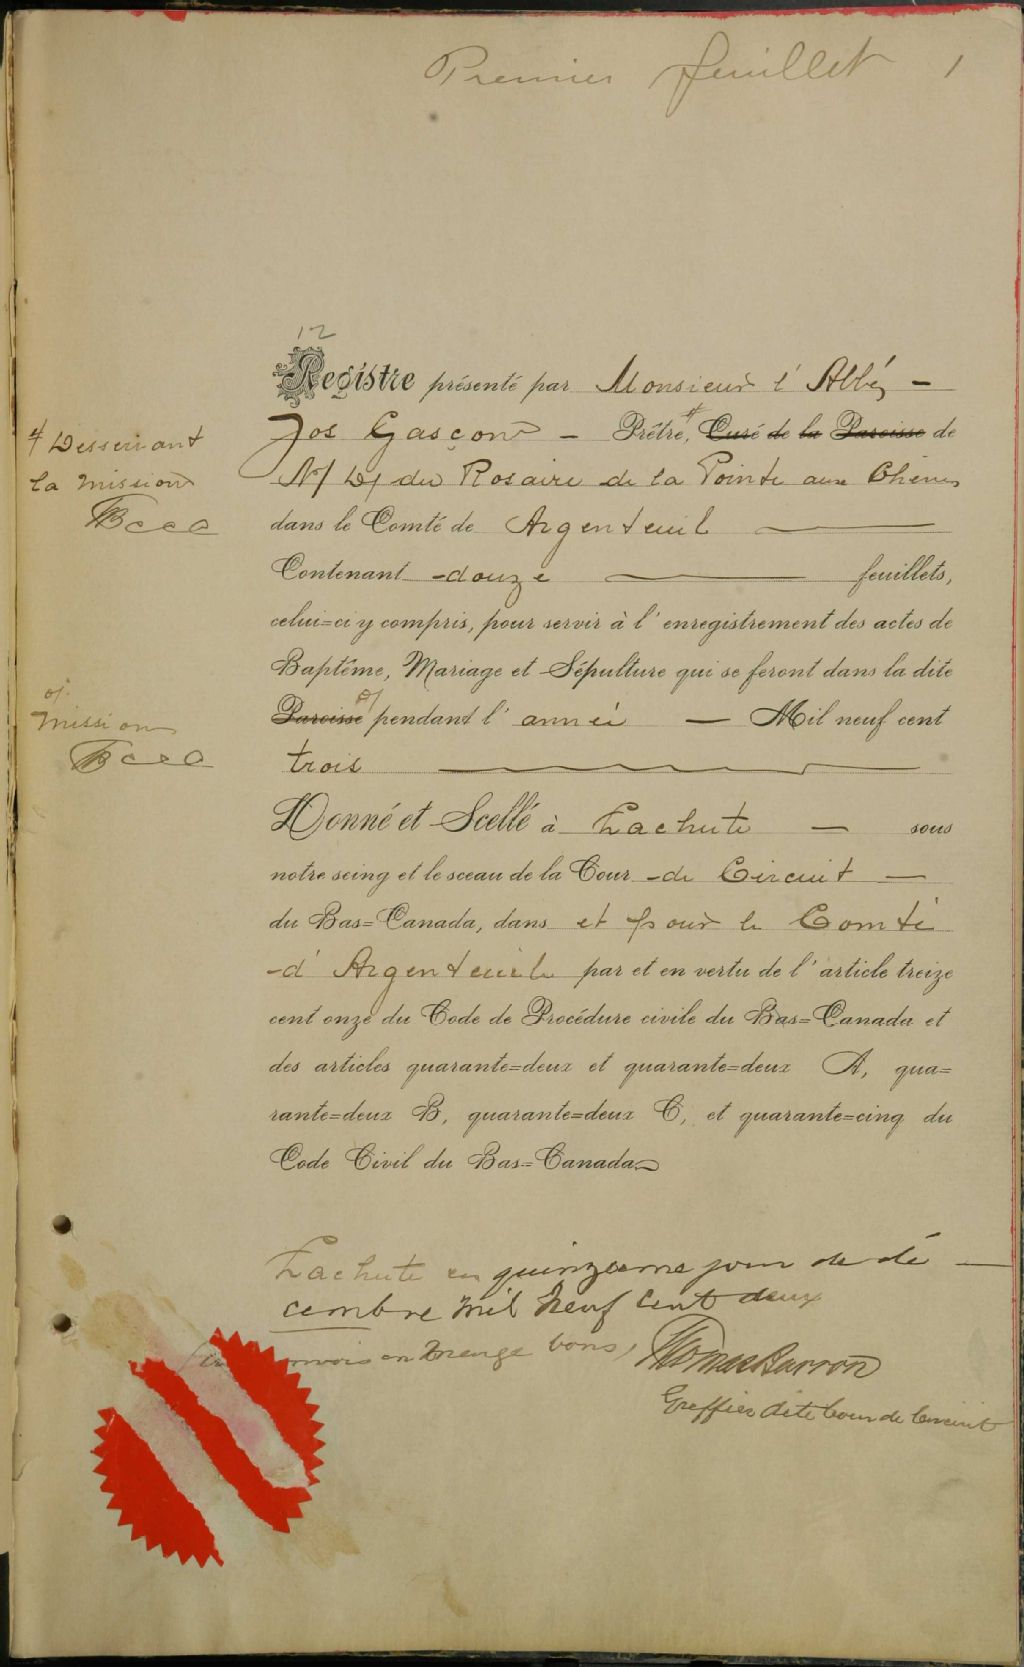 Premier feuillet 1
12
Registre présenté par Monsieur l'Abbé,
Jos Gascon - Prêtre, # Curé de la Paroisse de
# Desservant
la mission
TB CCC
N/ D/ du Rosaire de la Pointe aux Chênes
dans le Comté de Argenteuil
Contenant douze feuillets,
celui=ci y compris, pour servir à l'enregistrement des actes de
Baptême, Mariage et Sépulture qui se feront dans la dite
Paroisse o/ pendant l'année Mil neuf cent
o/
mission
TB CCC
trois
Donné et Scellé à Lachute - sous
notre seing et le sceau de la Cour de Circuit
du Bas=Canada, dans et pour le Comté
d'Argenteuil par et en vertu de l'article treize
cent onze du Code de Procédure civile du Bas=Canada et
des articles quarante=deux et quarante=deux A, qua=
rante=deux B, quarante=deux C, et quarante=cinq du
Code Civil du Bas=Canada
Lachute ce quinzieme jour de dé
cembre mil neuf cent deux
renvois en marge bons, Thomas Barron
Greffier dite Cour de Circuit